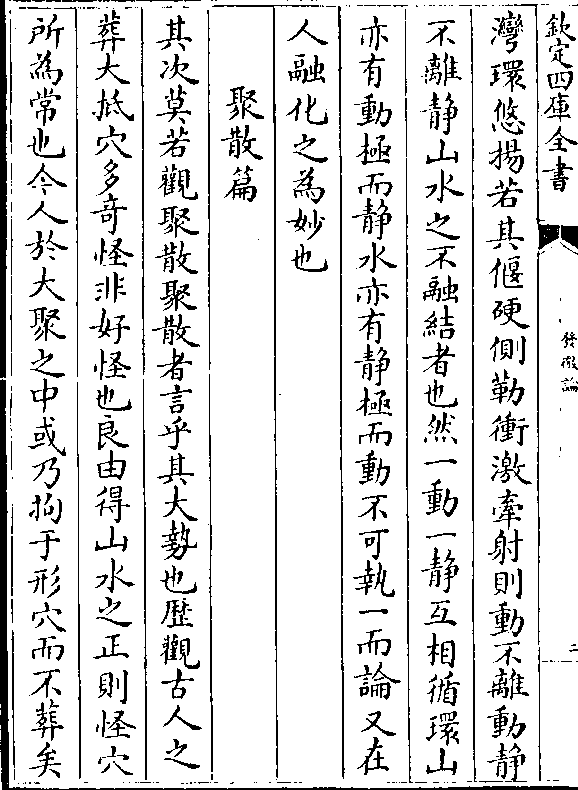 欽定四庫全書
發微論
二
灣環悠揚若其偃硬側勒衝激牽射則動不離動靜
不離静山水之不融結者也然一動一静互相循環山
亦有動極而静水亦有静極而動不可執一而論又在
人融化之為妙也
聚散篇
其次莫若觀聚散聚散者言乎其大勢也歴觀古人之
葬大抵穴多奇怪非好怪也良由得山水之正則怪穴
所為常也今人於大聚之中或乃拘于形穴而不葬矣